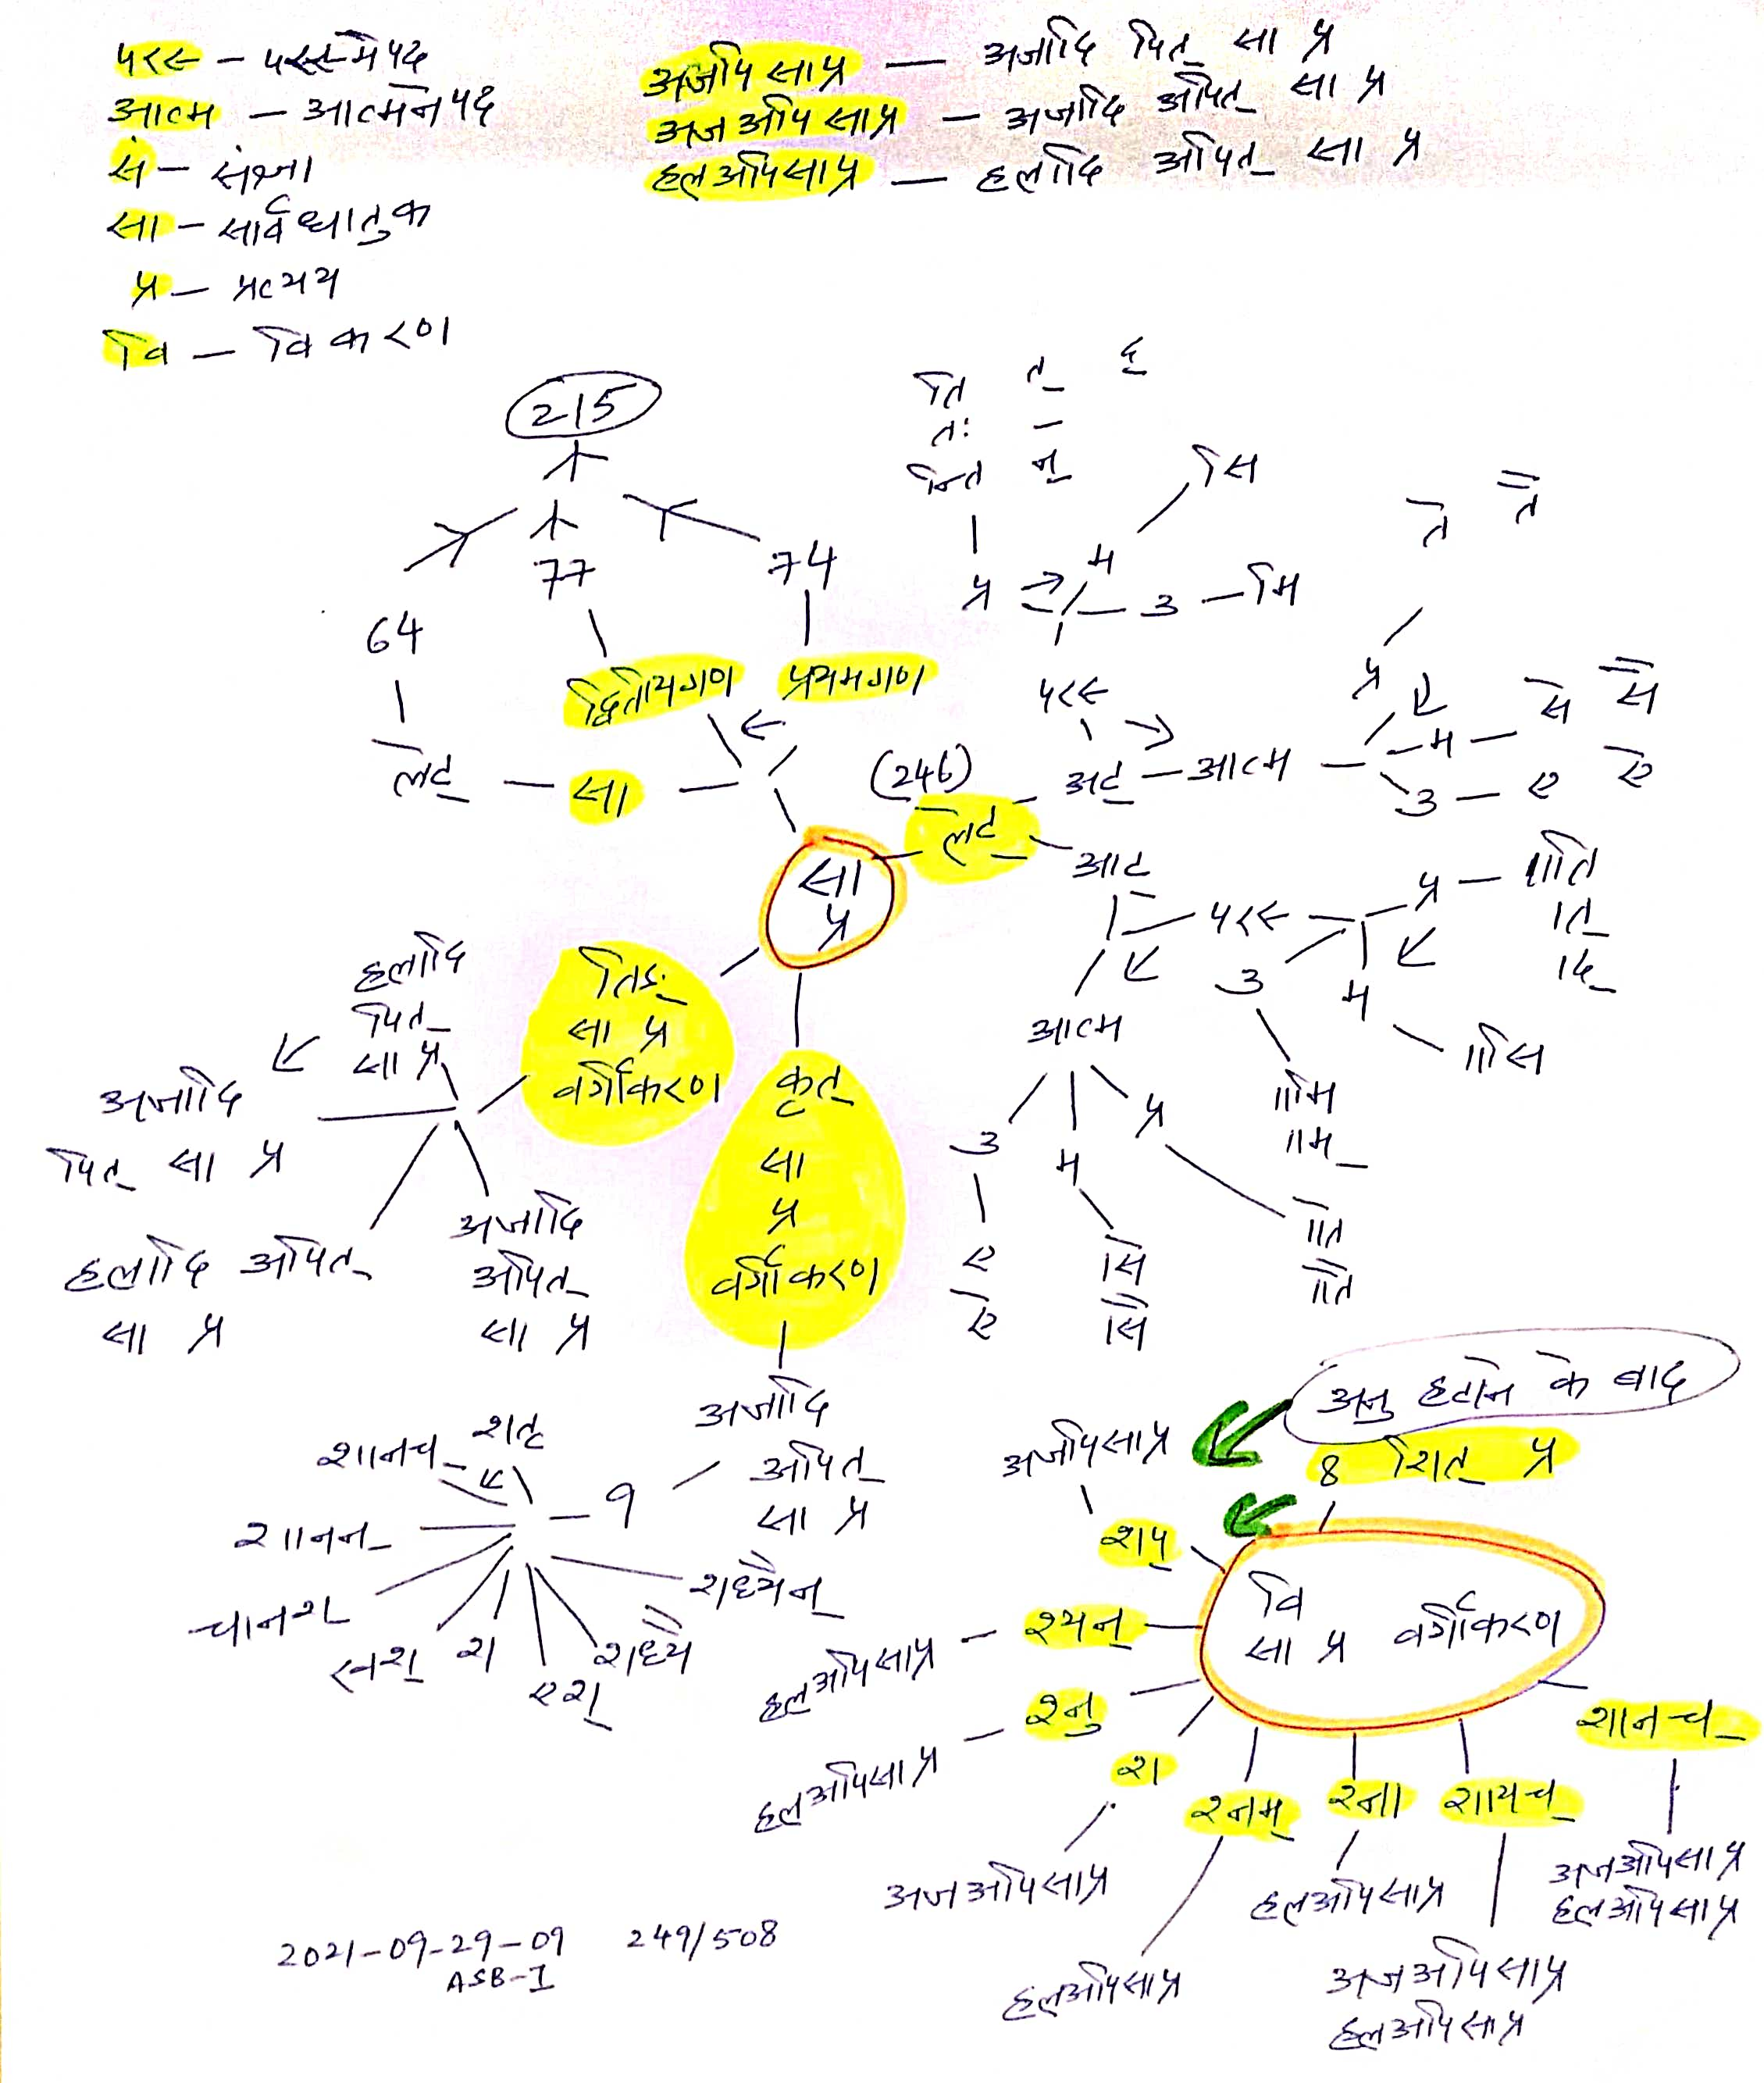 परस् – परस्मैपद
आत्म – आत्मनेपद
सं – संज्ञा
सा – सार्वधातुक
प्र – प्रत्यय
वि – विकरण
अजपि साप्र — अजादि पित् सा प्र
अज अपि साप्र – अजादि अपित् सा प्र
हल अपिसाप्र — हलादि अपित् सा प्र
215
77
74
64
द्वितीयगण
प्रथमगण
लेट् – सा
ति त् द्
तः –
न्ति न्
सि
म
प्र
उ – मि
परस्
(246)
लेट्
अट् – आत्म
ते तै
प्र
म – से सै
उ – ए ऐ
आट्
परस्
प्र – ाति
ात्
ाद्
उ
म
ासि
ामि
ाम्
आत्म
उ
म
प्र
ए
ऐ
ासे
ासै
ाते
ातै
सा
प्र
तिङ्
सा प्र
वर्गीकरण
हलादि
पित्
सा प्र
अजादि
पित् सा प्र
हलादि अपित्
सा प्र
अजादि
अपित्
सा प्र
कृत्
सा
प्र
वर्गीकरण
अजादि
अपित्
सा प्र
9
शतृ
शानच्
शानन्
चानश्
खश्
श
एश्
शध्यै
शध्यैन्
अनु हटाने के बाद
8 शित् प्र
वि
सा प्र वर्गीकरण
अजपिसाप्र
शप्
श्यन्
हल अपिसाप्र
श्नु
हल अपिसाप्र
श
अज अपिसाप्र
श्नम्
हलअपिसाप्र
श्ना
हलअपिसाप्र
शायच्
अज अपिसाप्र
हलअपिसाप्र
शानच्
अजअपिसाप्र
हलअपिसाप्र
2021-09-29-09 249/508
ASB-I